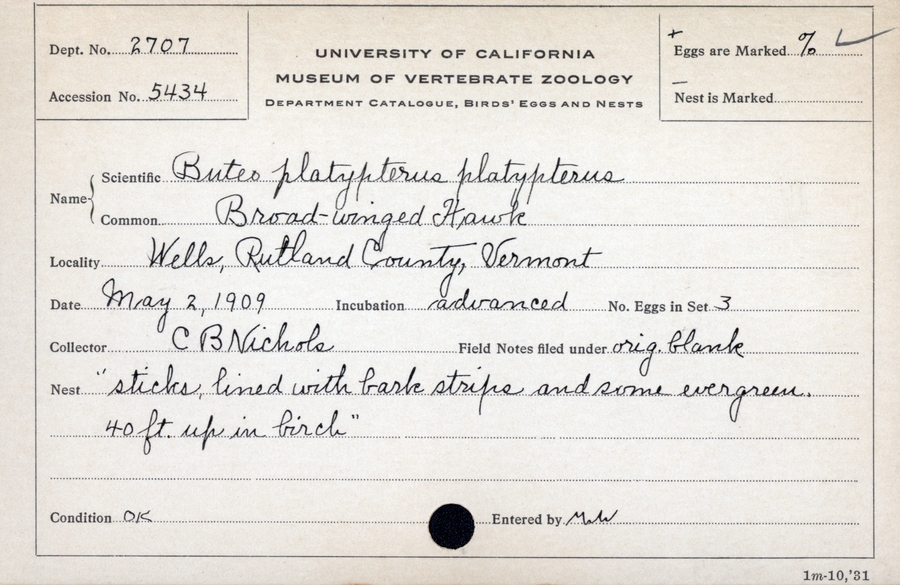 Dept. No. 2707
Accession No. 5434
UNIVERSITY OF CALIFORNIA
MUSEUM OF VERTEBRATE ZOOLOGY
DEPARTMENT CATALOGUE, BIRDS' EGGS AND NESTS
+
Eggs are Marked %
—
Nest is Marked
Name { Scientific Buteo platypterus platypterus
Common Broad-winged Hawk
Locality Wells, Rutland County, Vermont
Date May 2, 1909 Incubation advanced No. Eggs in Set 3
Collector C B Nichols Field Notes filed under orig. blank
Nest "sticks, lined with bark strips and some evergreen.
40 ft. up in birch"
Condition OK Entered by
1m-10,'31